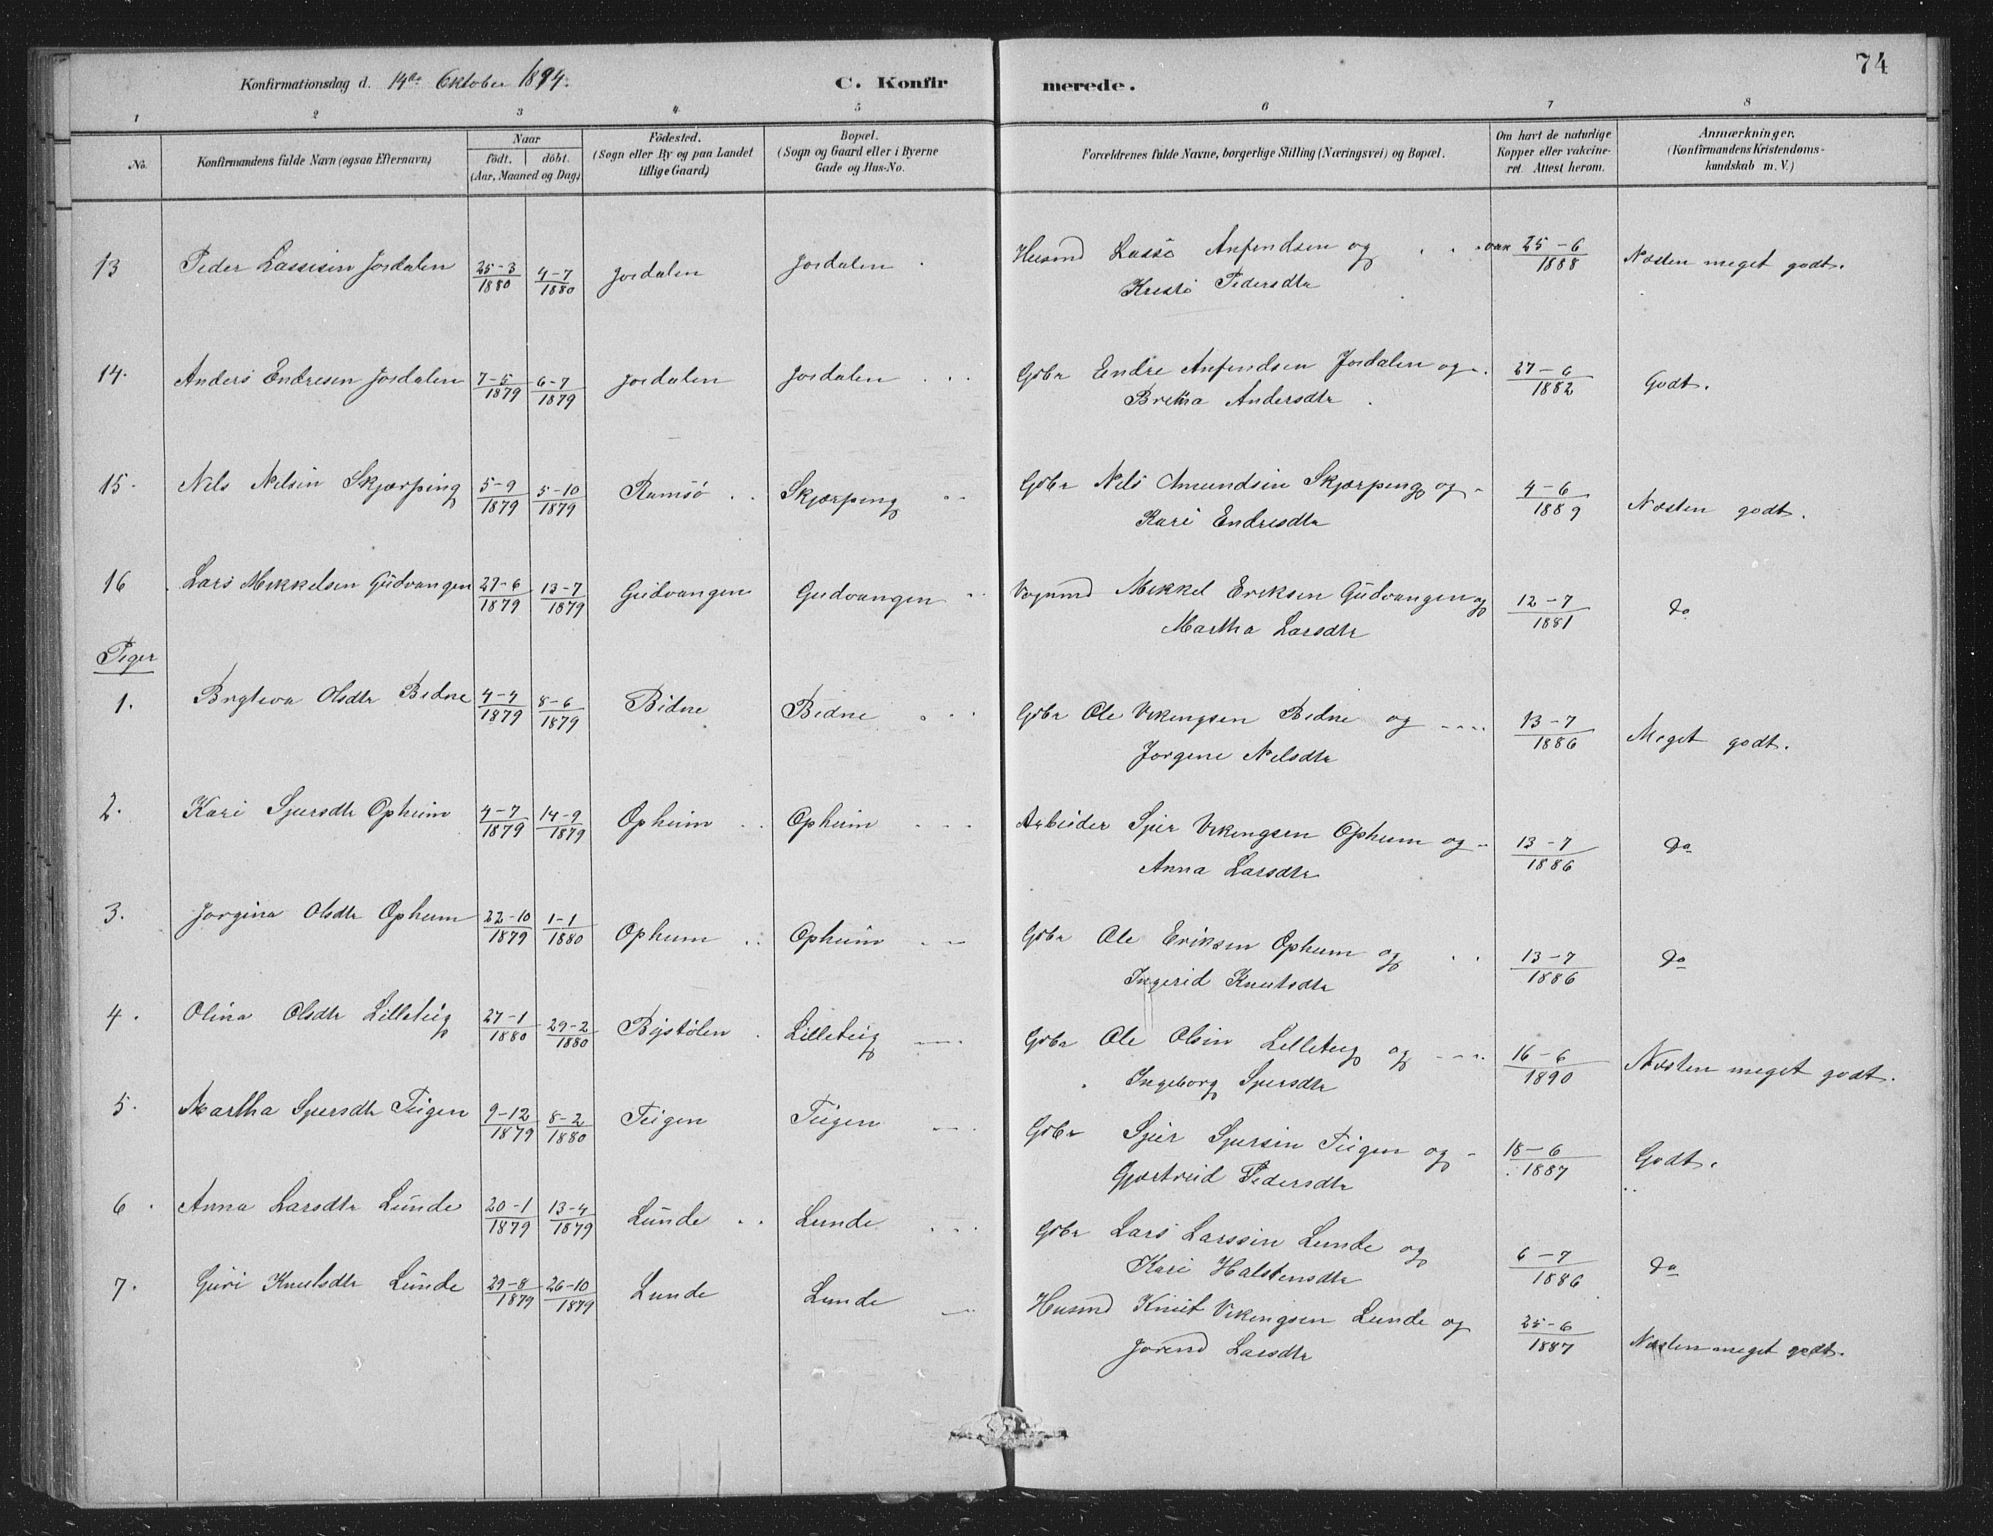 74
Konfirmationsdag d. 14de Oktober 1894. C. Konfirmerede.
1 2 3 4 5 6 7 8
No. Konfirmandens fulde Navn (ogsaa Efternavn) Naar födt. döbt. (Aar, Maaned og Dag) Födested. (Sogn eller By og paa Landet tillige Gaard) Bopæl. (Sogn og Gaard eller i Byerne Gade og Hus-No. Forældrenes fulde Navne, borgerlige Stilling (Næringsvei) og Bopæl. Om havt de naturlige Kopper eller vakcineret. Attest herom. Anmærkninger. (Konfirmandens Kristendomskundskab m. V.)
13 Peder Lassesen Jordalen 25-3 1880 4-7 1880 Jordalen Jordalen Husmd Lasse Anfendsen og 25-6 1888 Næsten meget godt.
Kristi Pedersdtr
14. Anders Endresen Jordalen 7-5 1879 6-7 1879 Jordalen Jordalen Gdbr Endre Anfendsen Jordalen og 27-6 1882 Godt.
Britha Andersdtr
15. Nils Nilsen Skjærping 5-9 1879 5-10 1879 Ramsø Skjærping Gdbr Nils Amundsen Skjærping og 4-6 1889 Næsten godt.
Kari Endresdtr
16 Lars Mikkelsen Gudvangen 27-6 1879 13-7 1879 Gudvangen Gudvangen Vognmd Mikkel Eriksen Gudvangen og 12-7 1881 do
Martha Larsdtr
Piger
1. Bryteva Olsdtr Bidne 4-4 1879 8-6 1879 Bidne Bidne Gdbr Ole Vikingsen Bidne og 13-7 1886 Meget godt.
Jorgine Nilsdtr
2. Kari Sjursdtr Opheim 4-7 1879 14-9 1879 Opheim Opheim Arbeider Sjur Vikingsen Opheim og 13-7 1886 do
Anna Larsdtr
3. Jorgina Olsdtr Opheim 22-10 1879 1-1 1880 Opheim Opheim Gdbr Ole Eriksen Opheim og 13-7 1886 do
Ingerid Knutsdtr
4. Olina Olsdtr Lilleteig 27-1 1880 29-2 1880 Bystølen Lilleteig Gdbr Ole Olsen Lilleteig og 16-6 1890 Næsten meget godt.
Ingeborg Sjursdtr
5. Martha Sjursdtr Teigen 9-12 1879 8-2 1880 Teigen Teigen Gdbr Sjur Sjursen Teigen og 18-6 1887 Godt.
Gjertrud Pedersdtr
6. Anna Larsdtr Lunde 20-1 1879 13-4 1879 Lunde Lunde Gdbr Lars Larssen Lunde og 6-7 1886 do
Kari Halstensdtr
7. Guri Knutsdtr Lunde 29-8 1879 26-10 1879 Lunde Lunde Husmd Knut Vikingsen Lunde og 25-6 1887 Næsten meget godt.
Jorend Larsdtr